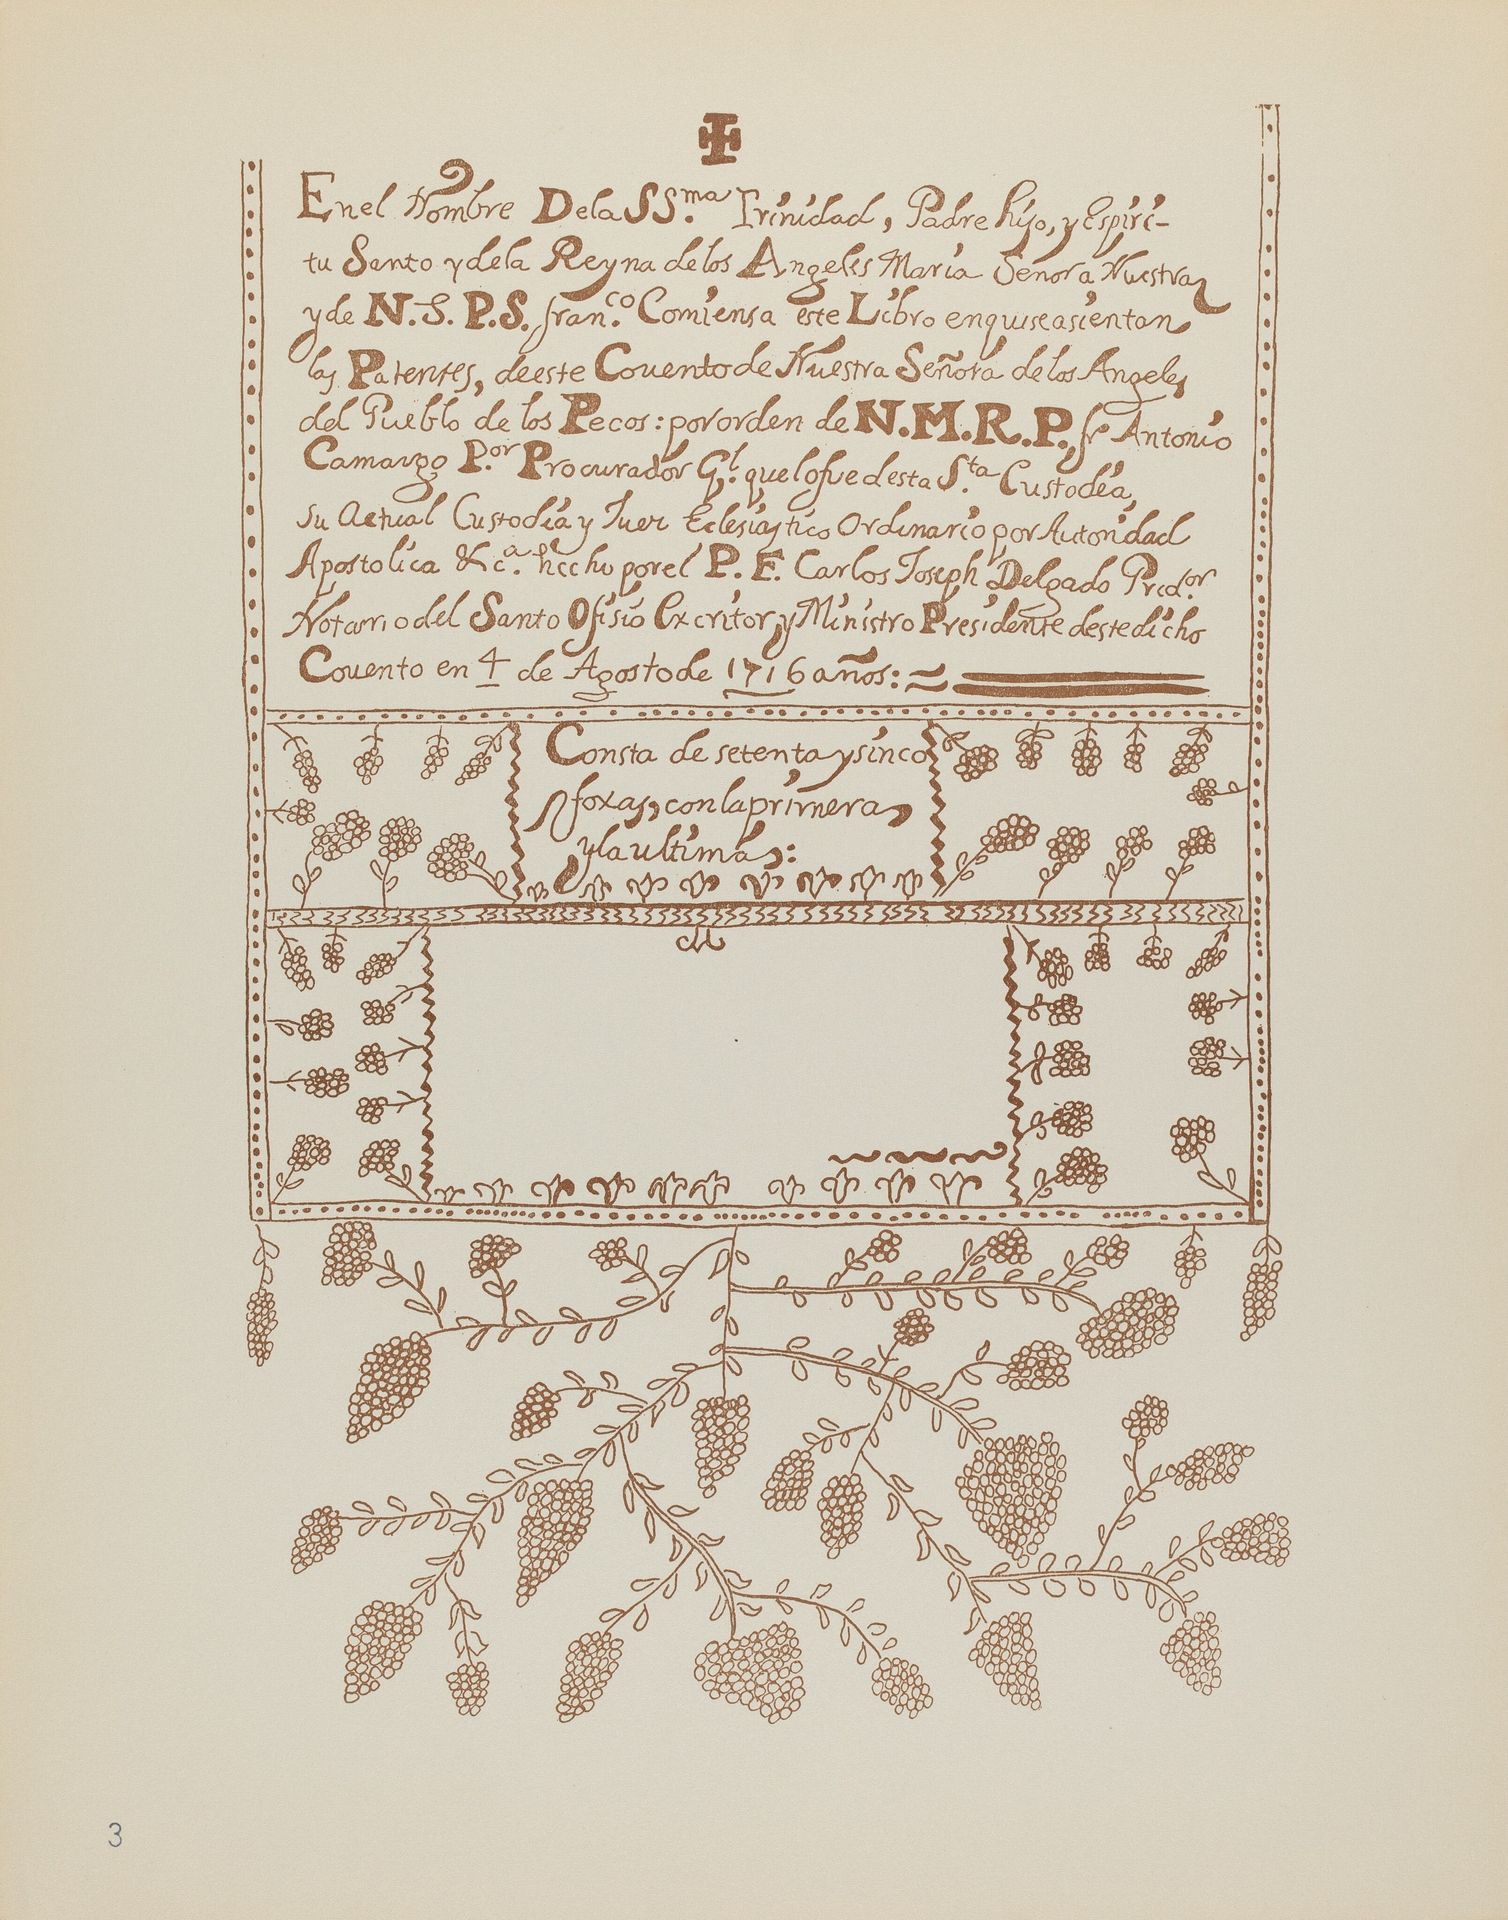 En el Nombre De la SS.ma Trinidad, Padre hijo, y Espiri-
tu Santo y de la Reyna de los Angeles Maria Señora Nuestra
y de N. S. P. S. fran.co Comiensa este Libro en quiseasientan
las Patentes, de este Couento de Nuestra Señora de los Angeles
del Pueblo de los Pecos: por orden de N. M. R. P. fr Antonio
Camargo P.or Procurador G.l que lo fue desta S.ta Custodia,
su Actual Custodia y Juez Eclesiastico Ordinario por Autoridad
Apostolica &c.a hecho por el P. F. Carlos Joseph Delgado Pred.or
Notario del Santo Ofisio Excritor, y Ministro Presidente deste dicho
Couento en 4 de Agosto de 1716 años:
Consta de setenta y sinco
foxas, con la primera,
y la ultima,:
3